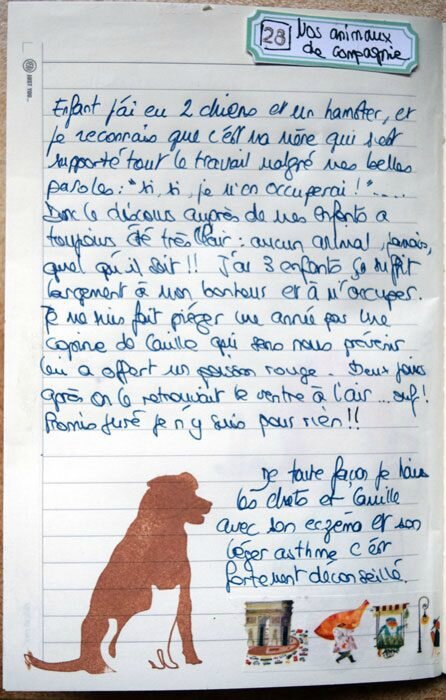 28 Nos animaux
de compagnie
Enfant j'ai eu 2 chiens et un hamster, et
je reconnais que c'est ma mère qui s'est
supporté tout le travail malgré mes belles
paroles : "si, si, je m'en occuperai !"....
Donc le discours auprès de mes enfants a
toujours été très clair : aucun animal, jamais,
quel qu'il soit !! J'ai 3 enfants ça suffit
largement à mon bonheur et à m'occuper.
Je me suis fait piéger une année par une
copine de Camille qui sans nous prévenir
lui a offert un poisson rouge. Deux jours
après on le retrouvait le ventre à l'air ... ouf !
Promis juré je n'y suis pour rien !!
De toute façon je hais
les chats et Camille
avec son eczéma et son
léger asthme c'est
fortement déconseillé.